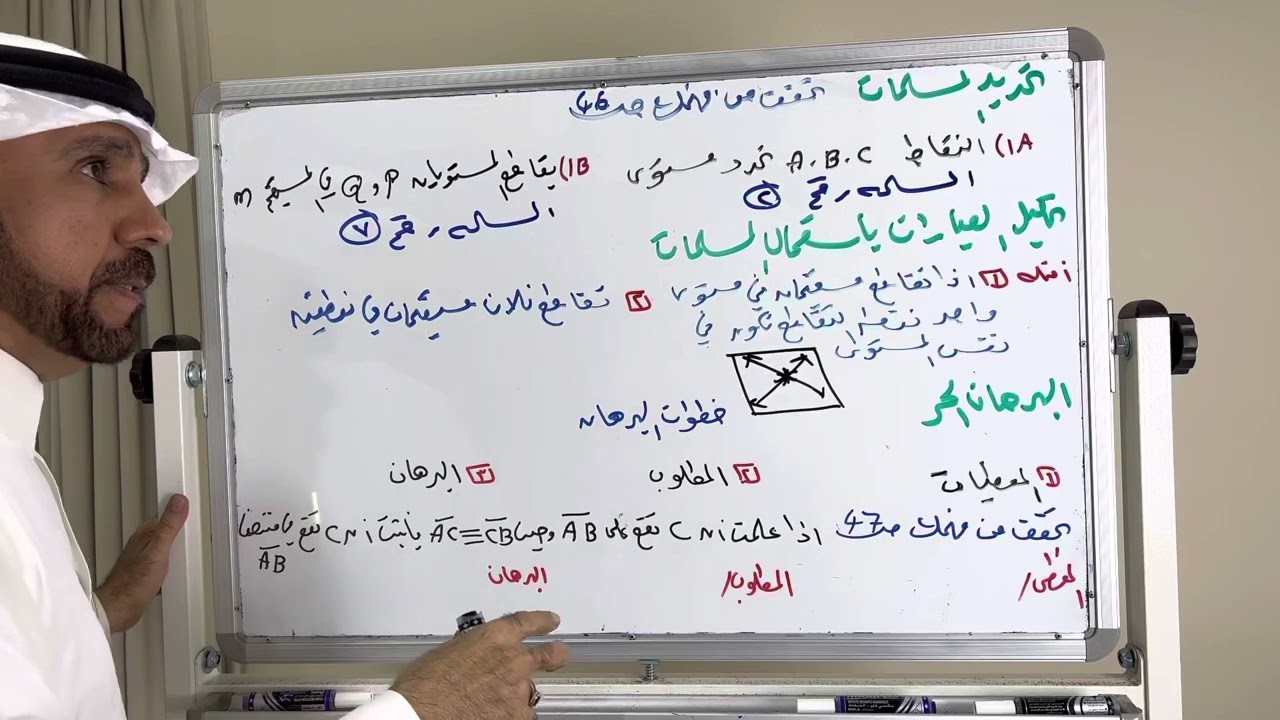 تحديد المسلمات تحقق من فهمك ص 46
1A) النقاط A . B . C تحدد مستوى
المسلمة رقم ٢
1B) يقاطع المستويان P و Q في المستقيم m
المسلمة رقم ٧
العبارات باستعمال المسلمات
١ اذا تقاطع مستقيمان في مستوى
واحد نقطة التقاطع تكون في
نفس المستوى
٢ تقاطع ثلاث مستقيمات في نقطتين
البرهان الحر
خطوات البرهان
١ المعطيات
٢ المطلوب
٣ البرهان
تحقق من فهمك ص 47 اذا علمت ان C تقع على AB وحيث AC ≡ CB فأثبت ان C تقع في منتصف
AB
المعطى/
المطلوب/
البرهان